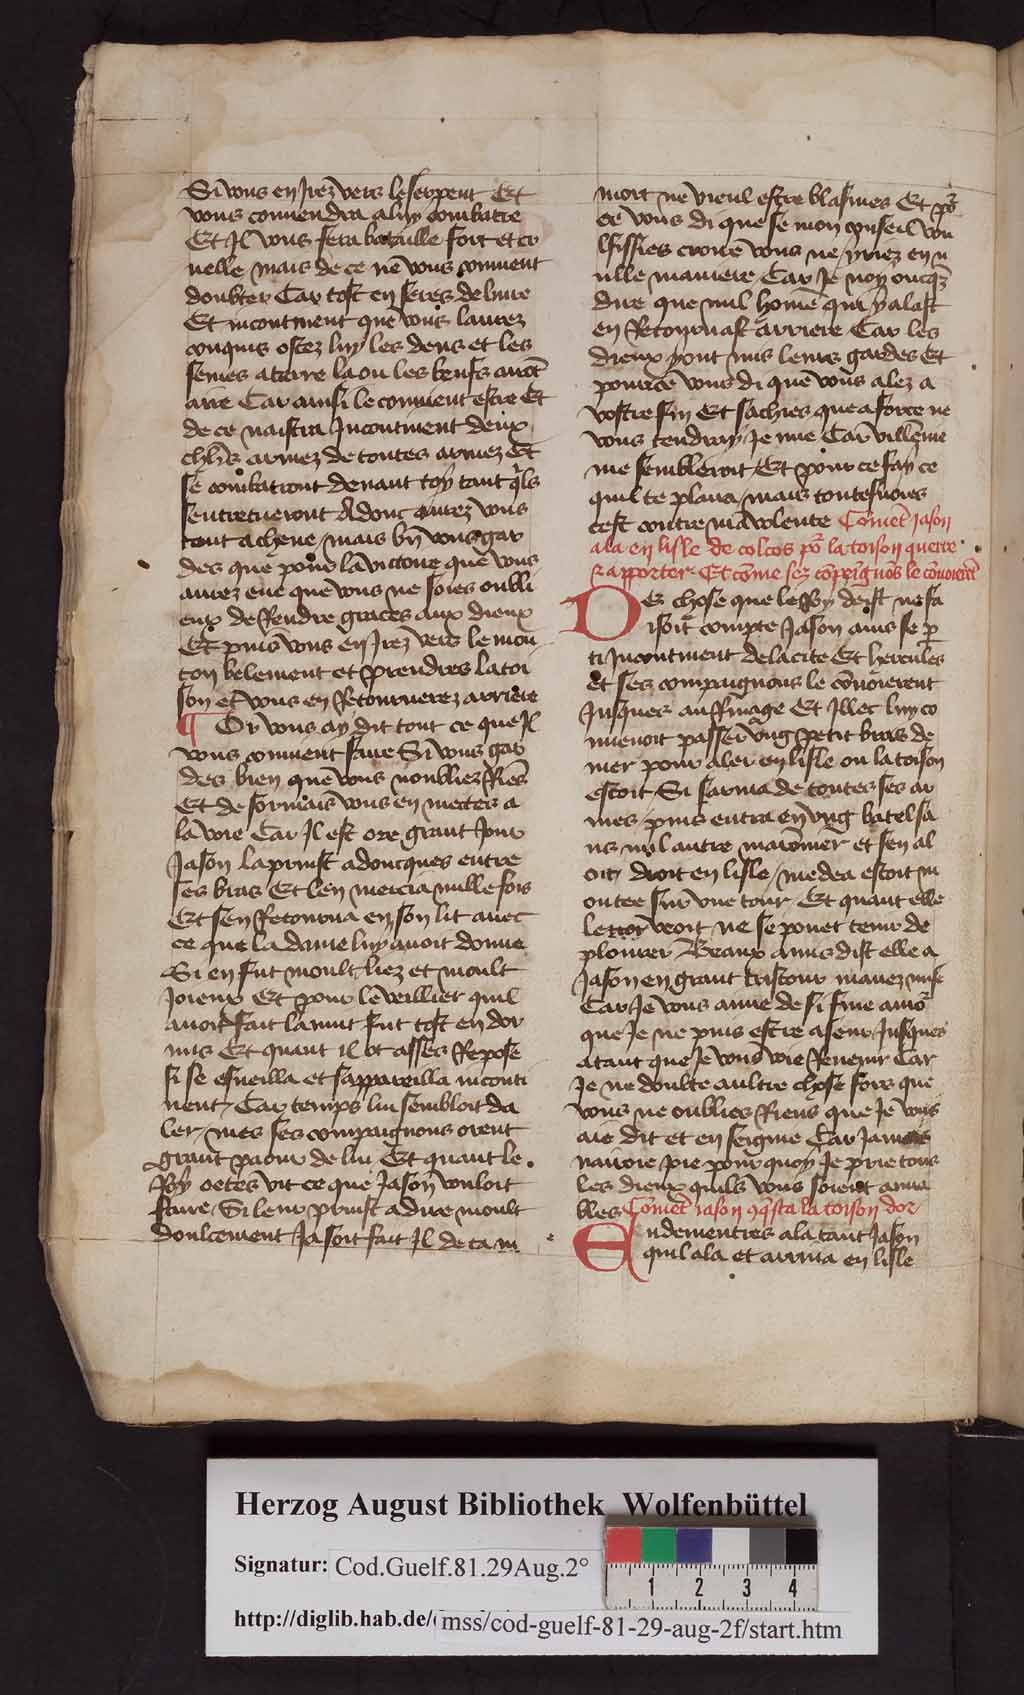 Si vous en Irez vers le serpent Et
vous conuendra a luy combatre
Et Il vous fera bataille fort et cr
uelle mais de ce ne vous conuient
doubter Car tost en seres deliure
Et incontinent que vous laurez
conquis ostez luy les dens et les
semes a terre la ou les beufs auront
are Car ainsi le conuient estre Et
de ce naistra Incontinent deux
chlrs armez de toutes armez Et
se combatront deuant toy tant qls
sentretueront Adonc aurez vous
tout acheue mais bn vous gar
des que pour la victoire que vous
aurez eue que vous ne soies oubli
eux de Rendre graces aux dieux
Et puis vous en Irez vers le mou
ton belement et prendres la toi
son et vous en Retournerez arriere
¶ Or vous ay dit tout ce que Il
vous conuient faire Si vous gar
des bien que vous noubliez Riens
Et desormais vous en mectes a
la voie Car Il est ore grant Jour
Jason la prinst adoncques entre
ses bras Et len mercia mille fois
Et sen Retourna en son lit auec
ce que la dame luy auoit donne
Si en fut moult liez et moult
Joieux Et pour le veillier quil
auoit fait la nuit fut tost endor
mis Et quant il ot asses Repose
si se esueilla et sappareilla inconti
nent Car temps lui sembloit da
ler mes ses compaignons orent
grant paour de lui Et quant le
Roy oetes vit ce que Jason vouloit
faire Si leur prinst a dire moult
doulcement Ja soit fait Il de ta m
mort ne vueul estre blasmes Et pr
ce vous di que se mon conseil vou
lsissies croire vous ne yriez en n
ulle maniere Car Je noy oncqs
dire que nul home qui y alast
en Retournast arriere Car les
dieux y ont mis leurs gardes Et
pource vous di que vous alez a
vostre fin Et sachies que a force ne
vous tendray Je mie Car villenie
me sembleroit Et pour ce fay ce
quil te plaira mais toutesuoies
cest contre ma volente Coment Jason
ala en lisle de colcos pr la toison querre
rapporter Et come sez compaignos le conuoierent
De chose que le Roy deist ne fa
isoit compte Jason ains se p
ti Incontinent de la cite Et hercules
et ses compaignons le conuoierent
Jusques au Riuage Et Illec luy co
nuenoit passer vng petit bras de
mer pour aler en lisle ou la toison
estoit Si sarma de toutes ses ar
mes puis entra en vng batel sa
ns nul autre maronnier et sen al
oit droit en lisle / medea estoit m
ontee sur vne tour Et quant elle
le veoit ne se pouet tenir de
plourer Beaux amis dist elle a
Jason en grant tristour mauez mise
Car Je vous aime de si fine amor
que Je ne puis estre aseur Jusques
a tant que Je vous voie Reuenir Car
Je ne doubte aultre chose fors que
vous ne oublies Riens que Je vous
aie dit et enseigne Car Jamais
nauroie pis pour quoy Je prie tous
les dieux quils vous soient aima
bles Coment Jason 9qsta la toison dor
Endementres ala tant Jason
quil ala et arriua en lisle
Herzog August Bibliothek Wolfenbüttel
Signatur: Cod.Guelf.81.29Aug.2°
http://diglib.hab.de/
mss/cod-guelf-81-29-aug-2f/start.htm
1 2 3 4